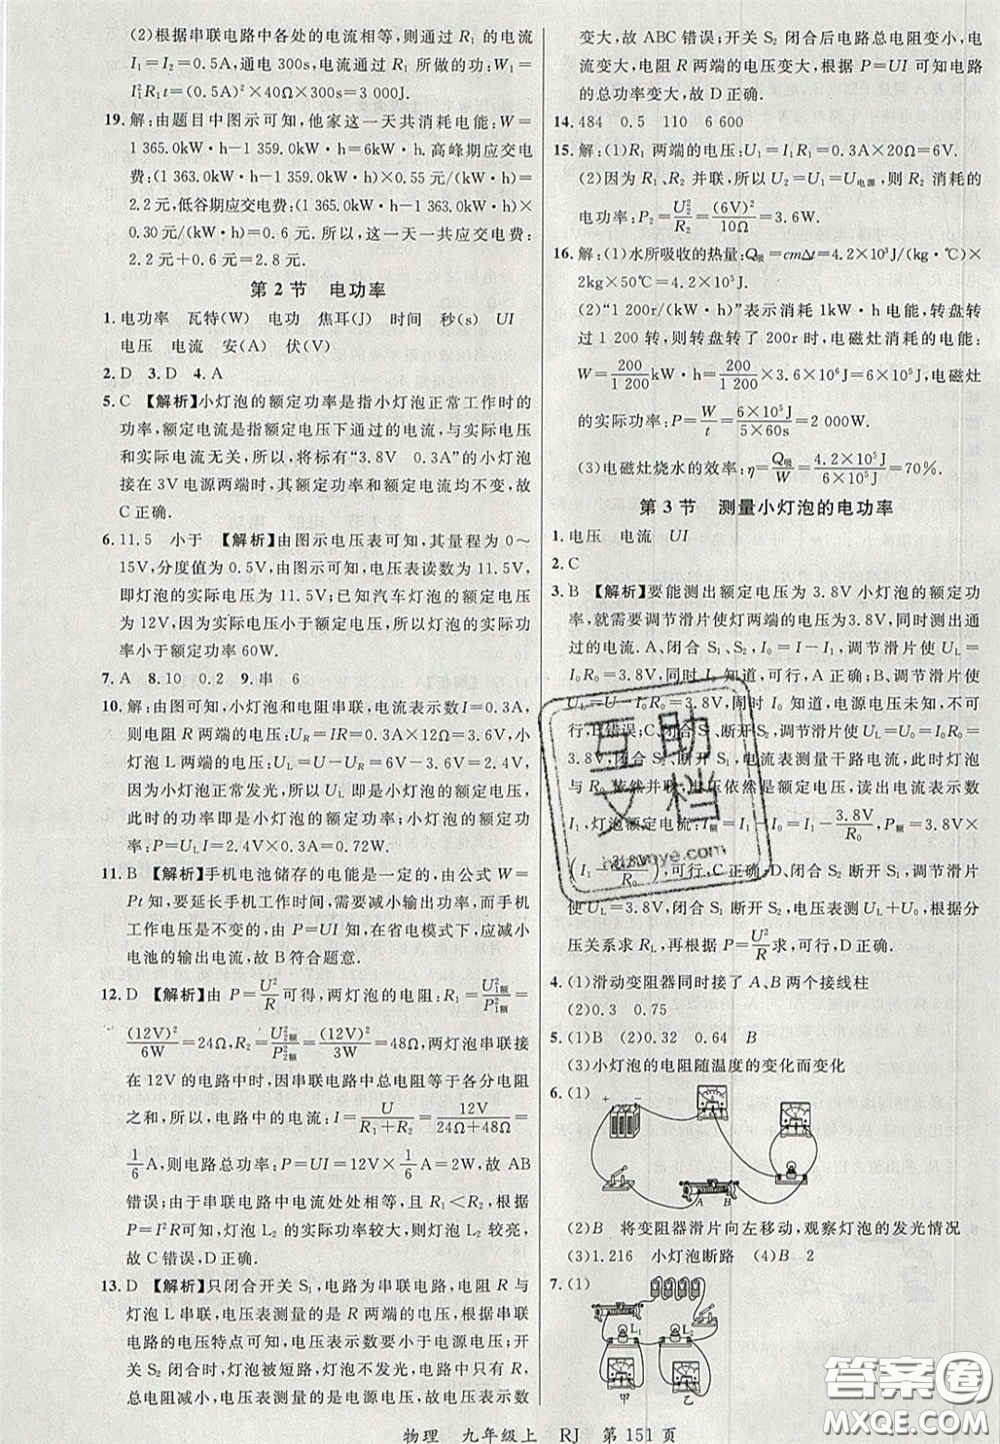 (2)根据串联电路中各处的电流相等,则通过 R₁ 的电流
I₁=I₂=0.5A,通电 300s,电流通过 R₁ 所做的功:W₁=
I₁²R₁t=(0.5A)²×40Ω×300s=3 000J.
19.解:由题目中图示可知,他家这一天共消耗电能:W=
1 365.0kW·h-1 359.0kW·h=6kW·h.高峰期应交电
费:(1 363.0kW·h-1 359.0kW·h)×0.55 元/(kW·h)=
2.2 元,低谷期应交电费:(1 365.0kW·h-1 363.0kW·h)×
0.30 元/(kW·h)=0.6 元.所以,这一天一共应交电费:
2.2 元+0.6 元=2.8 元.
第 2 节 电功率
1.电功率 瓦特(W) 电功 焦耳(J) 时间 秒(s) UI
电压 电流 安(A) 伏(V)
2.D 3.D 4.A
5.C 【解析】小灯泡的额定功率是指小灯泡正常工作时的
功率,额定电流是指额定电压下通过的电流,与实际电压
和实际电流无关,所以,将标有“3.8V 0.3A”的小灯泡
接在 3V 电源两端时,其额定功率和额定电流均不变,故
C 正确.
6.11.5 小于 【解析】由图示电压表可知,其量程为 0~
15V,分度值为 0.5V,由图可知,电压表读数为 11.5V,
即灯泡的实际电压为 11.5V;已知汽车灯泡的额定电压
为 12V,因为实际电压小于额定电压,所以灯泡的实际功
率小于额定功率 60W.
7.A 8.10 0.2 9.串 6
10.解:由图可知,小灯泡和电阻串联,电流表示数 I=0.3A,
则电阻 R 两端的电压:U_R=IR=0.3A×12Ω=3.6V,小
灯泡 L 两端的电压:U_L=U-U_R=6V-3.6V=2.4V,
因为小灯泡正常发光,所以 U_L 即是小灯泡的额定电压,
此时的功率即是小灯泡的额定功率,小灯泡的额定功
率:P=U_L I=2.4V×0.3A=0.72W.
11.B 【解析】手机电池储存的电能是一定的,由公式 W=
Pt 知,要延长手机工作时间,需要减小输出功率,而手机
工作电压是不变的,由 P=UI 知,在省电模式下,应减小
电池的输出电流,故 B 符合题意.
12.D 【解析】由 P=U²/R 可得,两灯泡的电阻:R₁=U₁额²/P₁额=
(12V)²/6W=24Ω,R₂=U₂额²/P₂额=(12V)²/3W=48Ω,两灯泡串联接
在 12V 的电路中时,因串联电路中总电阻等于各分电阻
之和,所以,电路中的电流:I=U/(R₁+R₂)=12V/(24Ω+48Ω)=
1/6 A,则电路总功率:P=UI=12V×1/6 A=2W,故 AB
错误;由于串联电路中电流处处相等,且 R₁<R₂,根据
P=I²R可知,灯泡 L₂ 的实际功率较大,灯泡 L₂ 较亮,
故 C 错误,D 正确.
13.D 【解析】只闭合开关 S₁,电路为串联电路,电阻 R 与
灯泡 L 串联,电压表测量的是 R 两端的电压,根据串联
电路的电压特点可知,电压表示数要小于电源电压;开
关 S₂ 闭合时,灯泡被短路,灯泡不发光,电路中只有 R,
总电阻减小,电压表测量的是电源电压,故电压表示数
变大,故 ABC 错误;开关 S₂ 闭合后电路总电阻变小,电
流变大,电阻 R 两端的电压变大,由 P=UI 可知电路
的总功率变大,故 D 正确.
14.484 0.5 110 6 600
15.解:(1)R₁ 两端的电压:U₁=I₁R₁=0.3A×20Ω=6V.
(2)因为 R₁、R₂ 并联,所以 U₂=U₁=U电源,则 R₂ 消耗的
电功率:P₂=U₂²/R₂=(6V)²/10Ω=3.6W.
16.解:(1)水所吸收的热量:Q吸=cmΔt=4.2×10³J/(kg·℃)×
2kg×50℃=4.2×10⁵J.
(2)“1 200r/(kW·h)”表示消耗 1kW·h 电能,转盘转
过 1 200 转,则转盘转过了 200r 时,电磁灶消耗的电能:
W=200/1 200 kW·h=200/1 200×3.6×10⁶J=6×10⁵J,电磁灶
的实际功率:P=W/t=6×10⁵J/5×60s=2 000W.
(3)电磁灶烧水的效率:η=Q吸/W=4.2×10⁵J/6×10⁵J=70%.
第 3 节 测量小灯泡的电功率
1.电压 电流 UI
2.C
3.B 【解析】要能测出额定电压为 3.8V 小灯泡的额定功
率,就需要调节滑片使灯两端的电压为3.8V,同时测出通
过的电流.A、闭合 S₁、S₂,I₀=I-I₁,调节滑片使
I₀R₀=3.8V,同时 I₀、I₁ 知道,可行,A 正确;B、调节滑片使
U_L=U-I₀R₀=3.8V,同时 I₀ 知道,电源电压未知,不可
行,B 错误;C、闭合 S₁、断开 S₂,调节滑片使 U_L=
3.8V,闭合 S₂、断开 S₁,电流表测量干路电流,此时灯
与 R₀ 依然并联,电压依然是额定电压,读出电流表示数
I₁,灯泡额定电流:I额=I₁-I₀=I₁-3.8V/R₀,P额=3.8V×
(I₁-3.8V/R₀),可行,C 正确;D、闭合 S₂ 断开 S₁,调节滑片
使 U_L=3.8V,闭合 S₁ 断开 S₂,电压表测 U_L+U₀,根据分
压关系求 R_L,再根据 P=U²/R求,可行,D 正确.
4.(1)滑动变阻器同时接了 A、B 两个接线柱
(2)0.3 0.75
5.(1)B (2)0.32 0.64 B
(3)小灯泡的电阻随温度的变化而变化
6.(1)
+ -
A B
(2)B 将变阻器滑片向左移动,观察灯泡的发光情况
(3)1.216 小灯泡断路 (4)B 2
7.(1)
L₁ L₂
甲 乙
物理 九年级上 RJ 第 151 页
互助
文档
答案圈
MXQE.COM